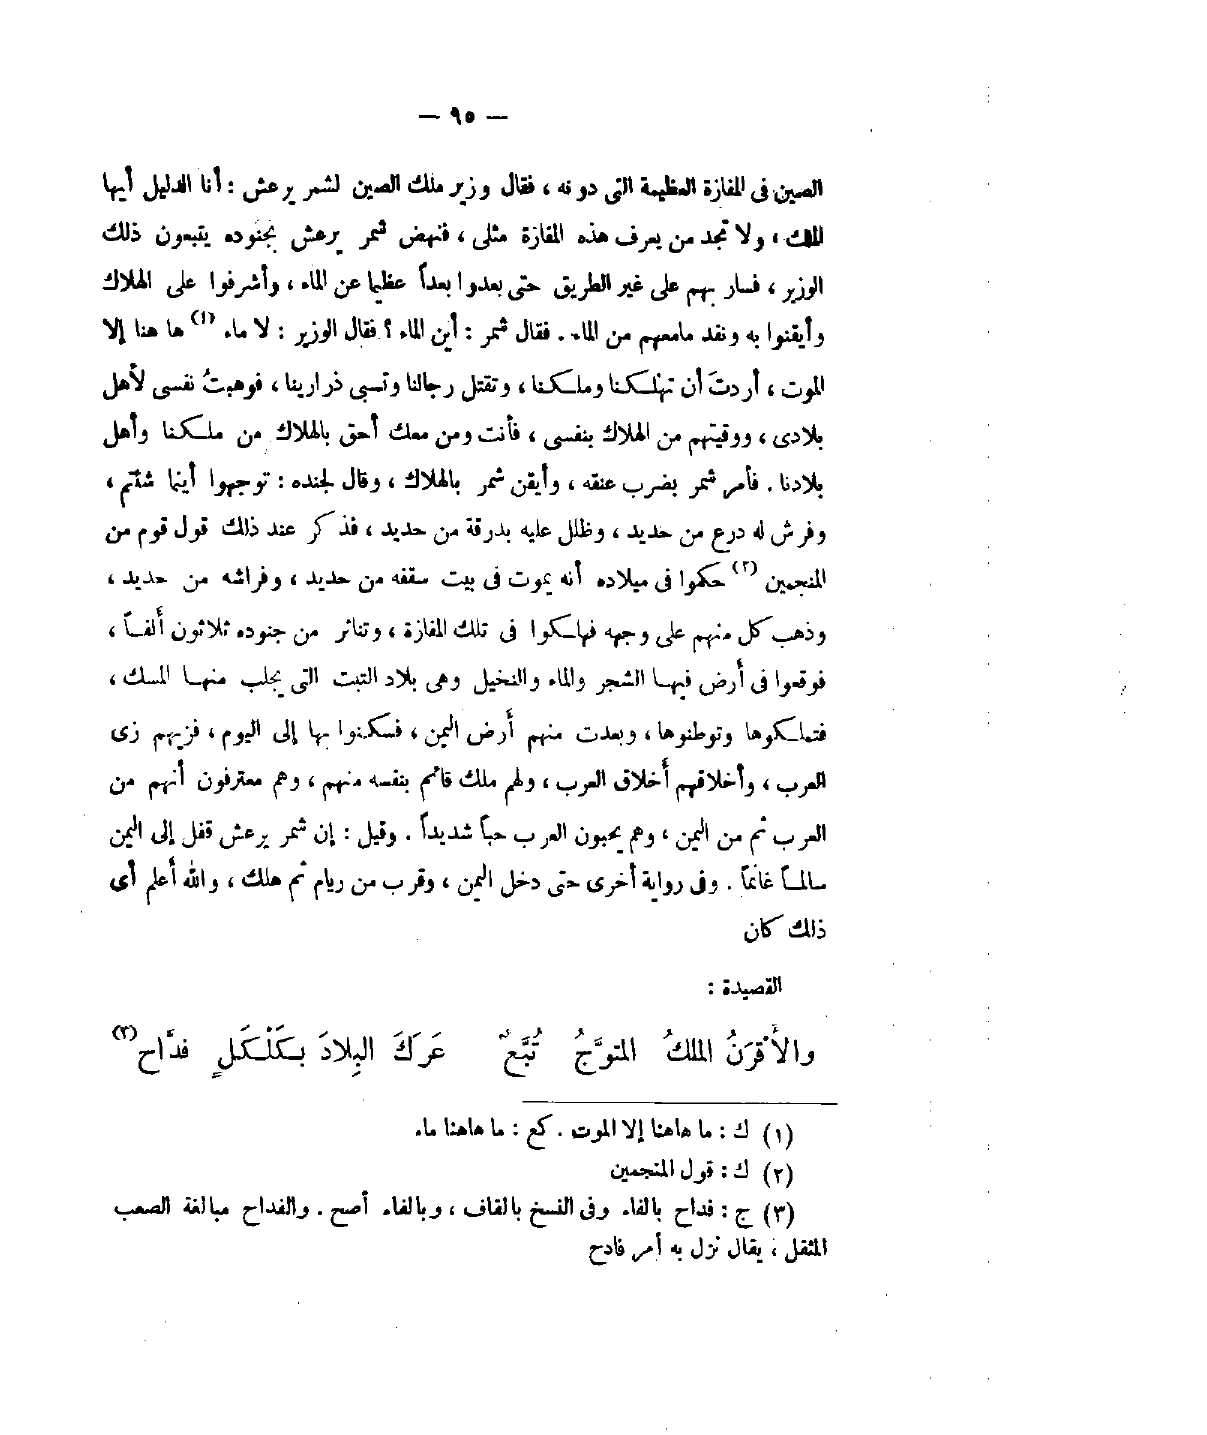 — ٩٥ —
الصين فى المفازة العظيمة التى دونه ، فقال وزير ملك الصين لشمر يرعش : أنا الدليل أيها
الملك ، ولا تجد من يعرف هذه المفازة مثلى ، فنهض شمر يرعش بجنوده يتبعون ذلك
الوزير ، فسار بهم على غير الطريق حتى بعدوا بعداً عظيما عن الماء ، وأشرفوا على الهلاك
وأيقنوا به ونفد مامعهم من الماء . فقال شمر : أين الماء ؟ فقال الوزير : لا ماء (١) ها هنا إلا
الموت ، أردتَ أن تهلكنا وملكنا ، وتقتل رجالنا وتسبى ذرارينا ، فوهبتُ نفسى لأهل
بلادى ، ووقيتهم من الهلاك بنفسى ، فأنت ومن معك أحق بالهلاك من ملكنا وأهل
بلادنا . فأمر شمر بضرب عنقه ، وأيقن شمر بالهلاك ، وقال لجنده : توجهوا أينما شئتم ،
وفرش له درع من حديد ، وظلل عليه بدرقة من حديد ، فذكر عند ذلك قول قوم من
المنجمين (٢) حكموا فى ميلاده أنه يموت فى بيت سقفه من حديد ، وفراشه من حديد ،
وذهب كل منهم على وجهه فهلكوا فى تلك المفازة ، وتناثر من جنوده ثلاثون ألفاً ،
فوقعوا فى أرض فيها الشجر والماء والنخيل وهى بلاد التبت التى يجلب منها المسك ،
فتملكوها وتوطنوها ، وبعدت منهم أرض اليمن ، فسكنوا بها إلى اليوم ، فزيهم زى
العرب ، وأخلاقهم أخلاق العرب ، ولهم ملك قائم بنفسه منهم ، وهم معترفون أنهم من
العرب ثم من اليمن ، وهم يحبون العرب حباً شديداً . وقيل : إن شمر يرعش قفل إلى اليمن
سالماً غانماً . وفى رواية أخرى حتى دخل اليمن ، وقرب من ريام ثم هلك ، والله أعلم أى
ذلك كان
القصيدة :
والأَقْرَنُ الملكُ المتوَّجُ تُبَّعٌ عَرَكَ البِلادَ بكَلْكَلٍ فدَّاح (٣)
(١) ك : ما هاهنا إلا الموت . كع : ما هاهنا ماء
(٢) ك : قول المنجمين
(٣) ج : فداح بالفاء وفى النسخ بالقاف ، وبالفاء أصح . والفداح مبالغة الصعب
المثقل ، يقال نزل به أمر فادح